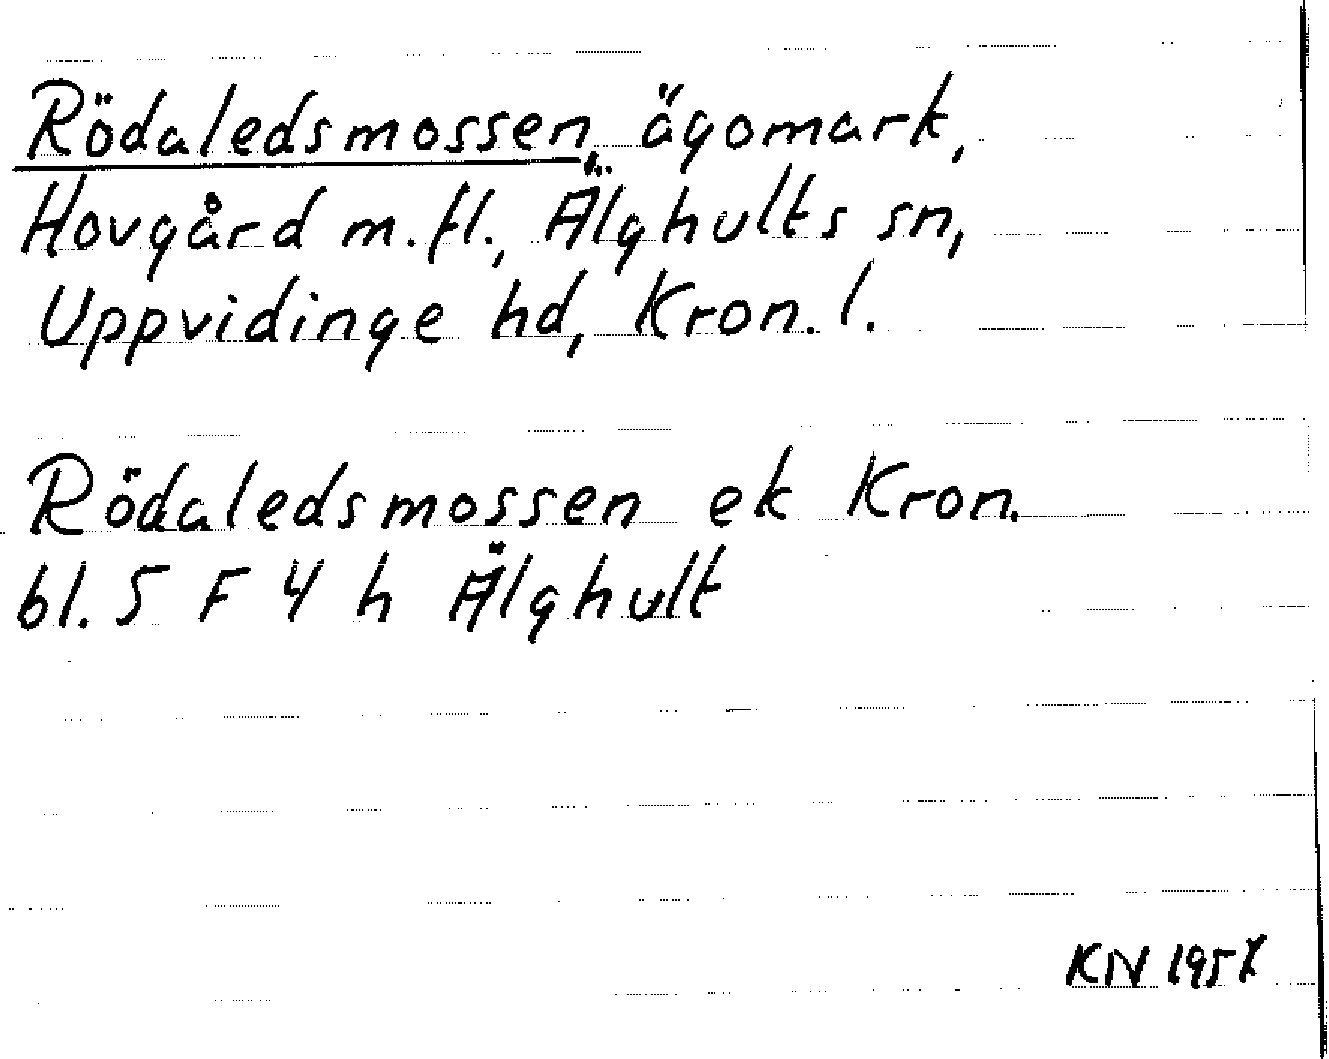 Rödaledsmossen, ägomark,
Hovgård m.fl., Älghults sn,
Uppvidinge hd, Kron. l.
Rödaledsmossen ek Kron.
bl. 5 F 4 h Älghult
KN 1957